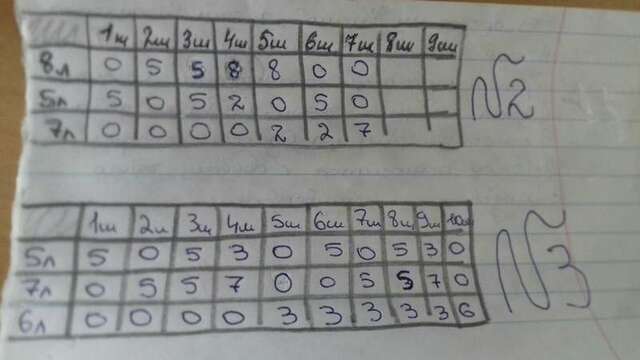 1ш 2ш 3ш 4ш 5ш 6ш 7ш 8ш 9ш
8л 0 5 5 8 8 0 0
5л 5 0 5 2 0 5 0
7л 0 0 0 0 2 2 7
№2
1ш 2ш 3ш 4ш 5ш 6ш 7ш 8ш 9ш 10ш
5л 5 0 5 3 0 5 0 5 3 0
7л 0 5 5 7 0 0 5 5 7 0
6л 0 0 0 0 3 3 3 3 3 6
№3